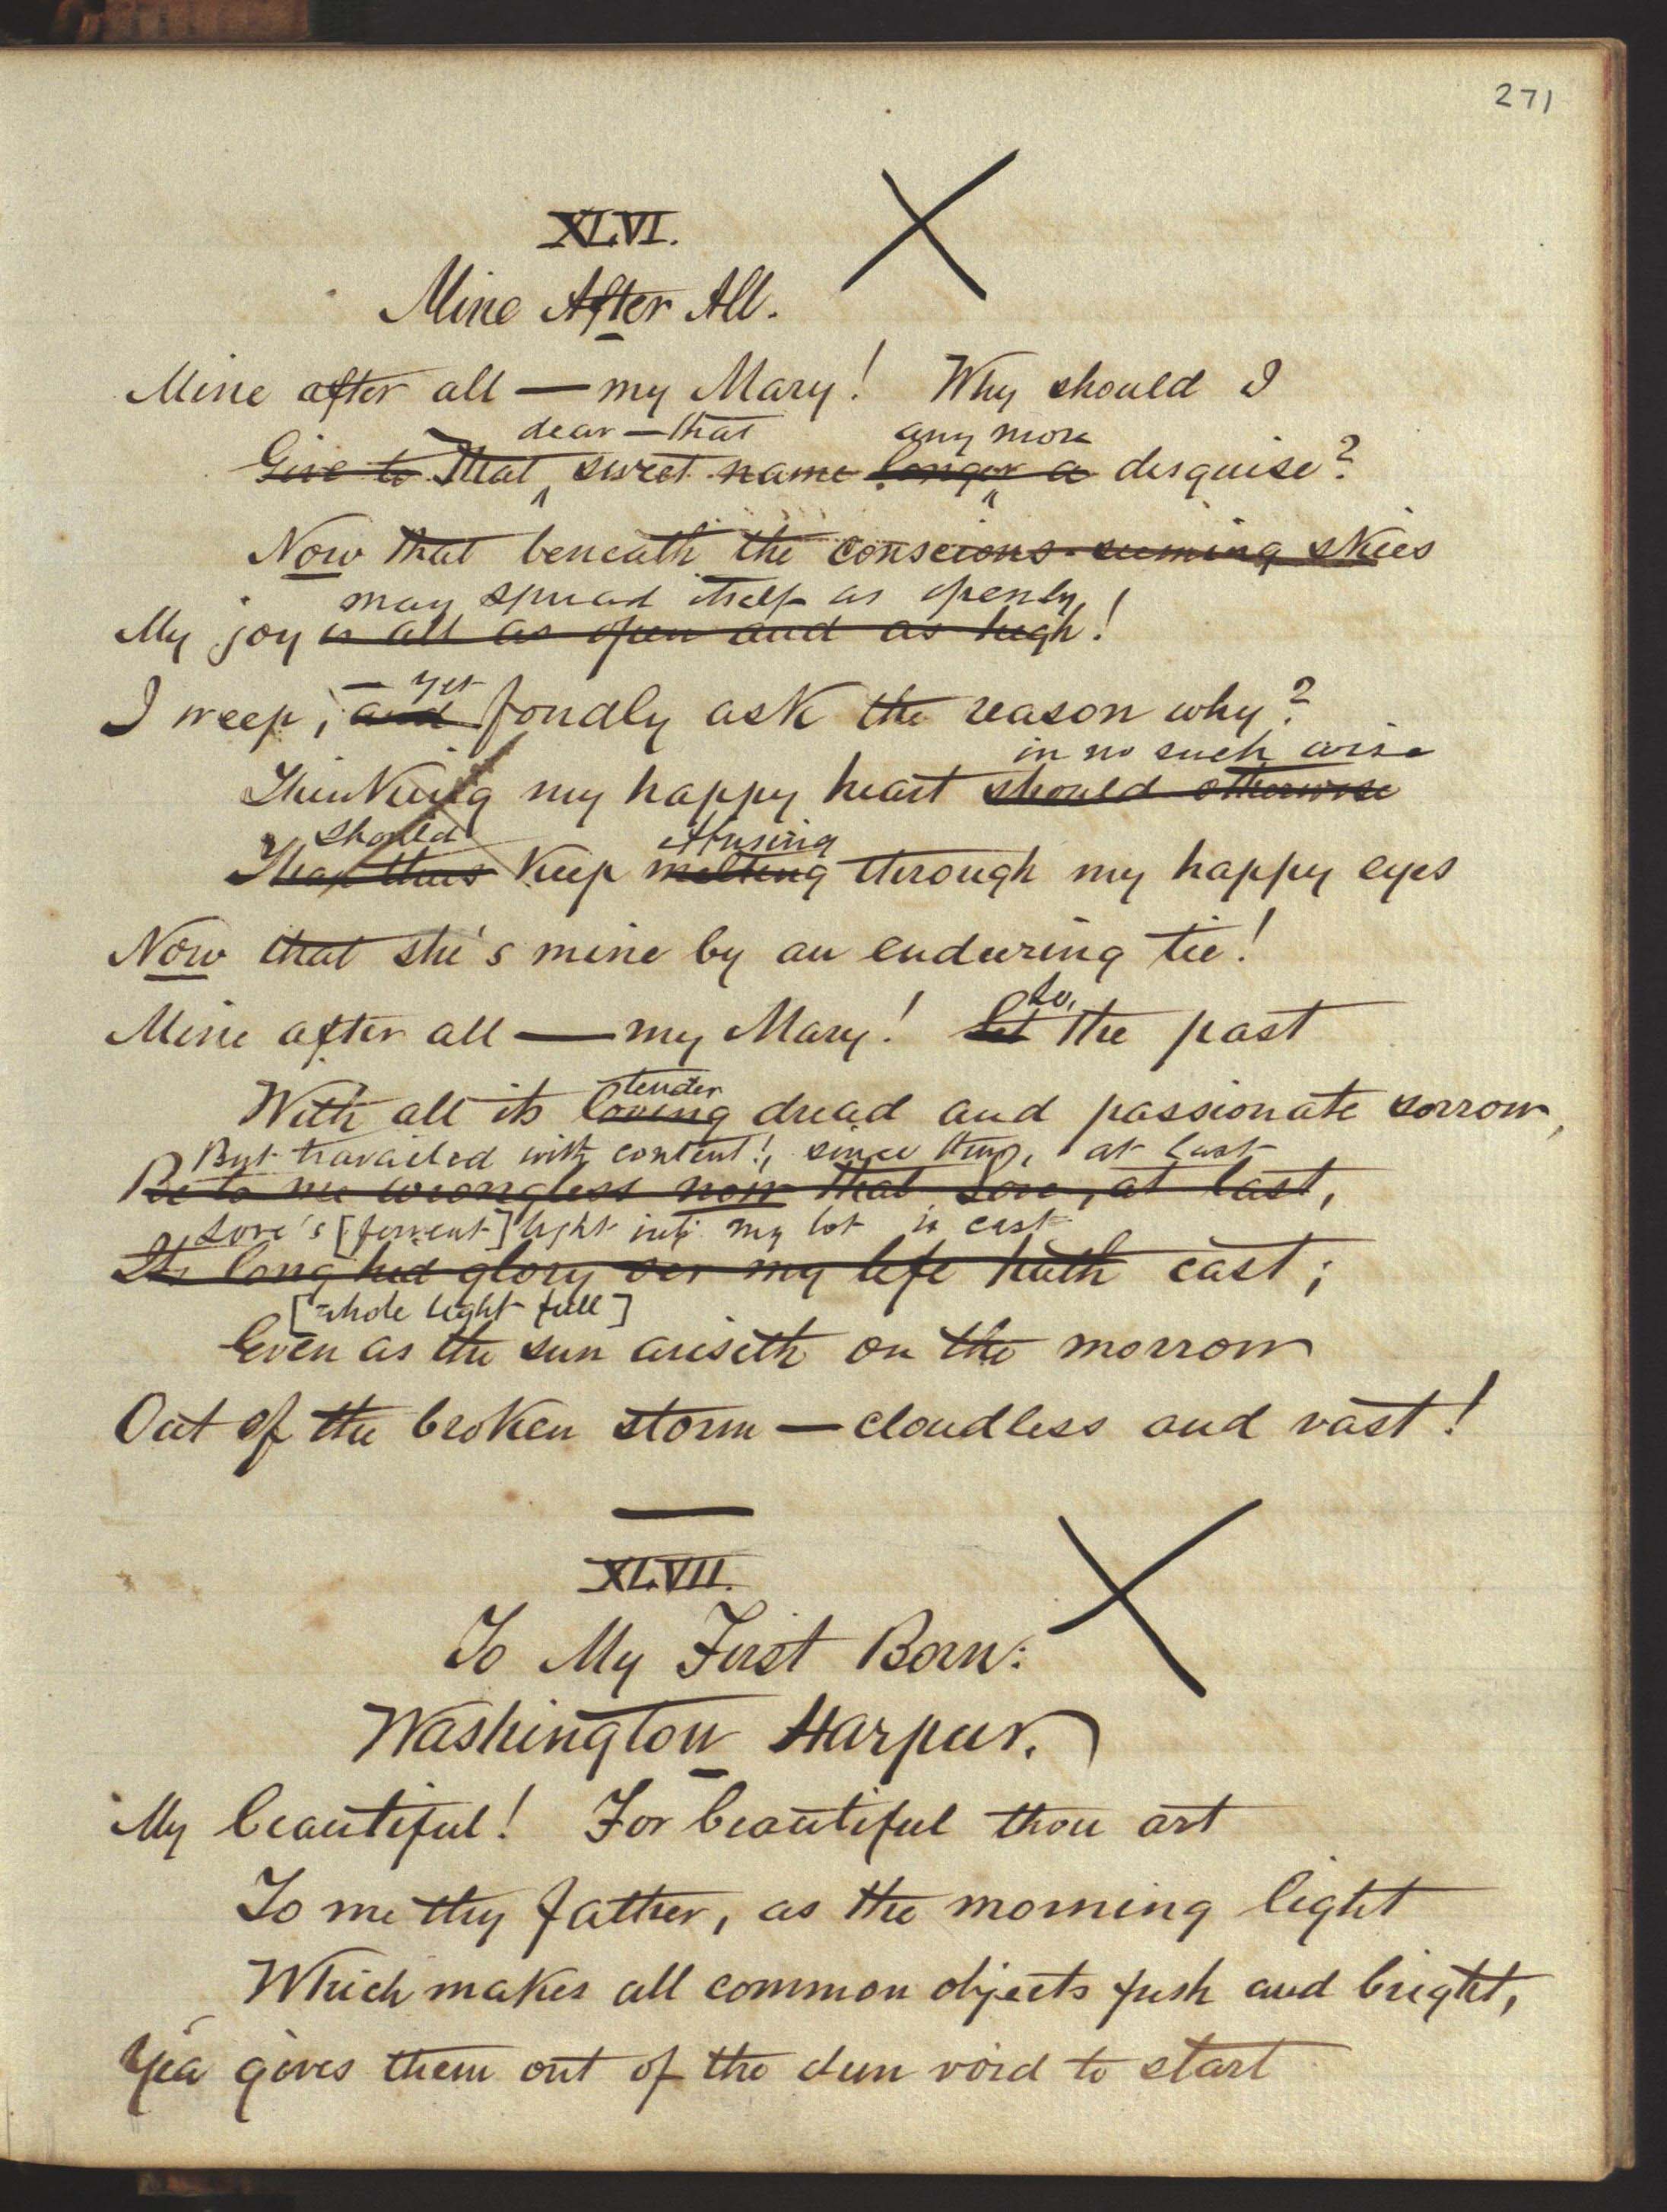 271
XLVI.
Mine After All.
Mine after all — my Mary! Why should I
dear — that any more
Give to That sweet name longer a disguise?
Now that beneath the conscious-seeming skies
may spread itself as openly,!
My joy is all as open and as high!
I weep; and fondly ask the reason why?
— yet
in no such wise
Thinking my happy heart should otherwise
should
Than thus Keep melting through my happy eyes
Now that she's mine by an enduring tie!
Lo,
Mine after all — my Mary! Let the past
tender
With all its loving dread and passionate sorrow,
But travailed with content!, since thus, at last
Be to me wrongless now that Love, at last,
Love's [fervent] light into my lot is cast
Its long hid glory oer my life hath cast;
[whole light full]
Even as the sun ariseth on the morrow
Out of the broken storm — cloudless and vast!
XLVII.
To My First Born:
Washington Harpur.
My beautiful! For beautiful thou art
To me thy father, as the morning light
Which makes all common objects fresh and bright,
Yea gives them out of the dun void to start